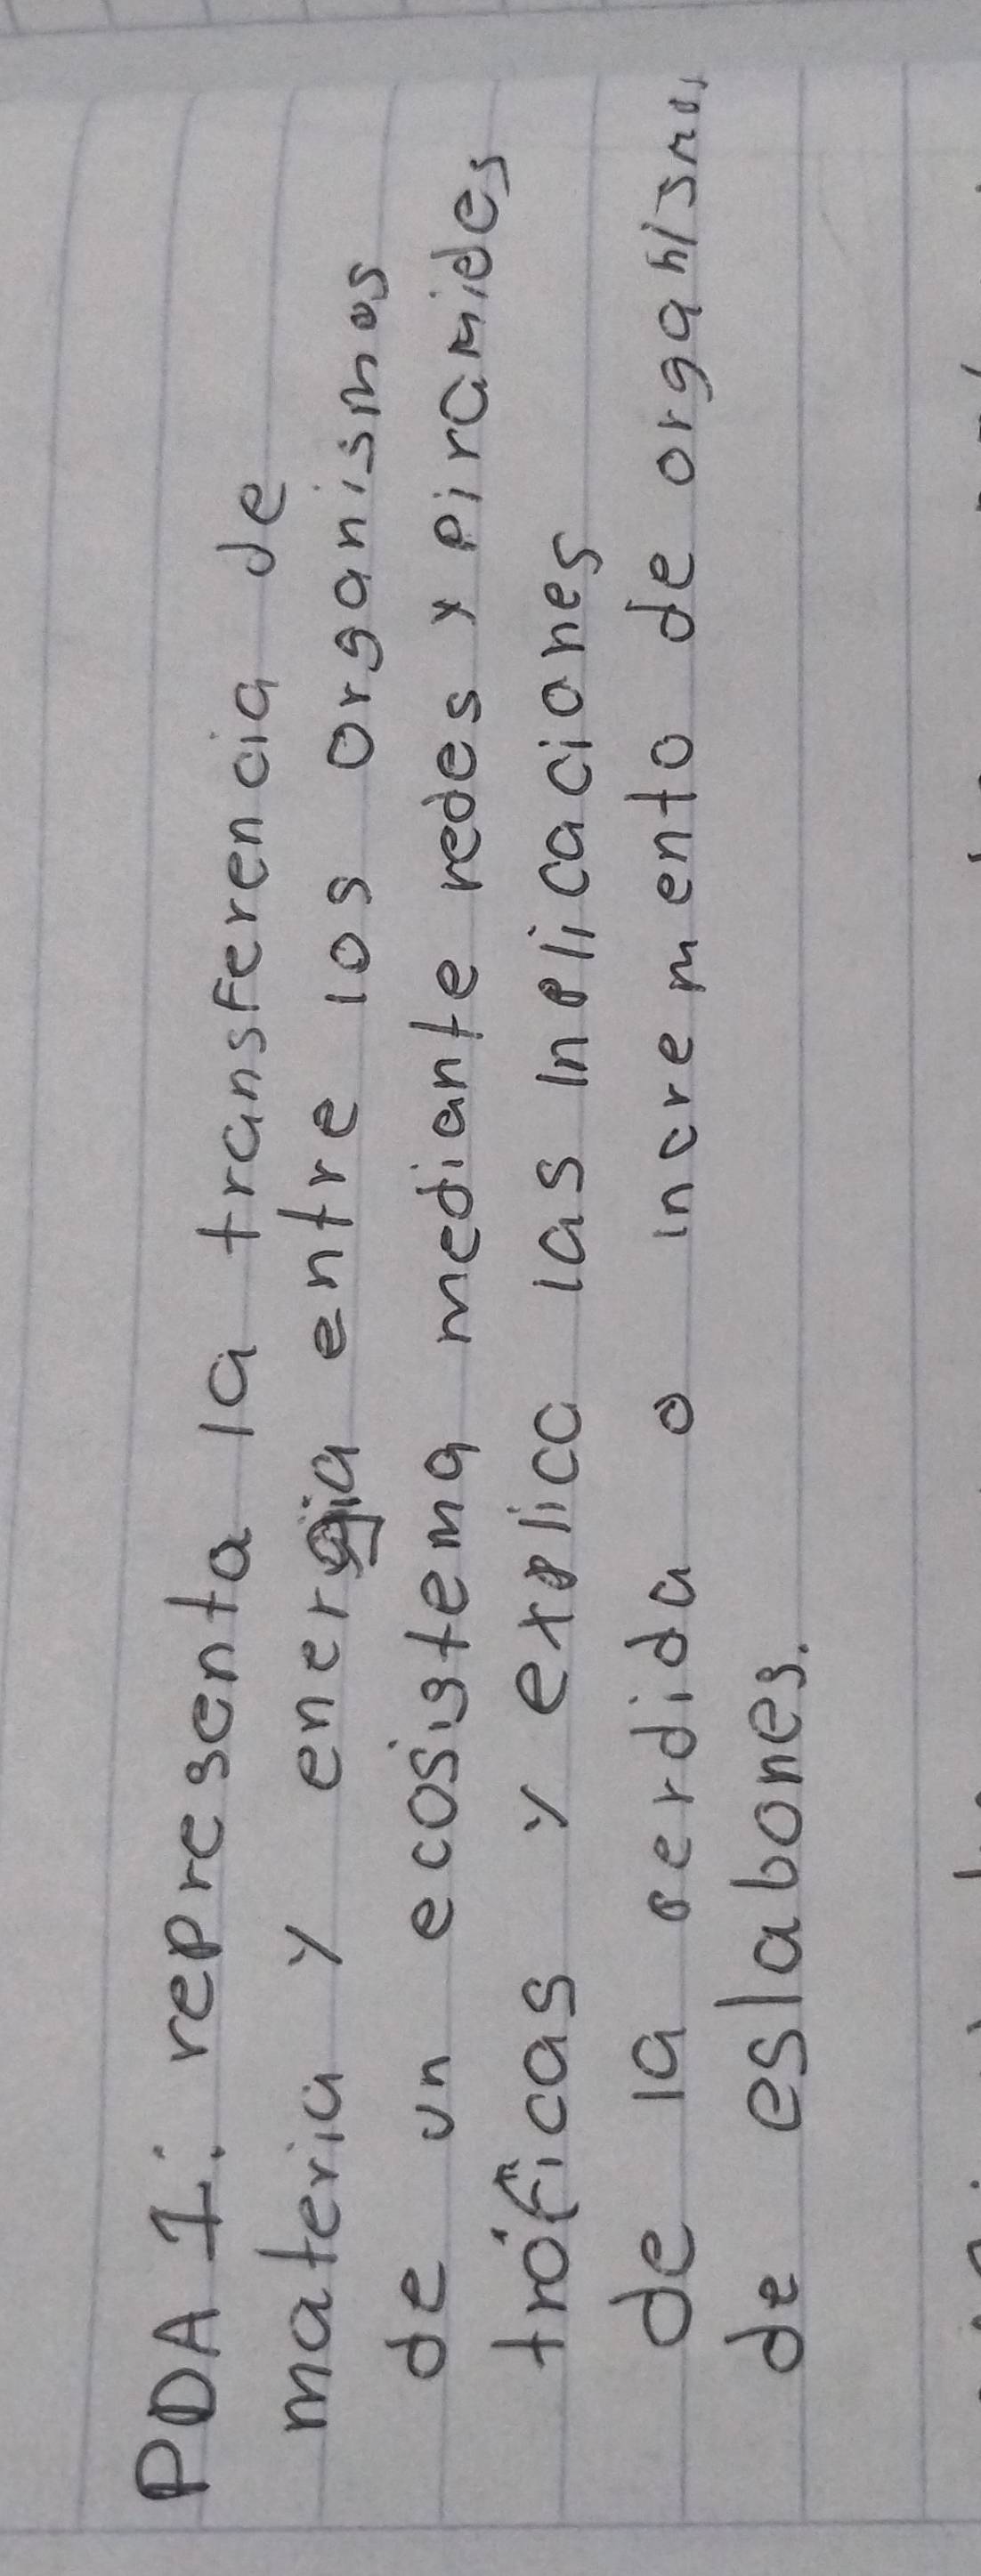 PDA 1: representa la transferencia de
materia y energia entre los organismos
de un ecosistema mediante redes y piramides
tróficas y explico las inplicaciones
de la perdida o incremento de organismos
de eslabones.